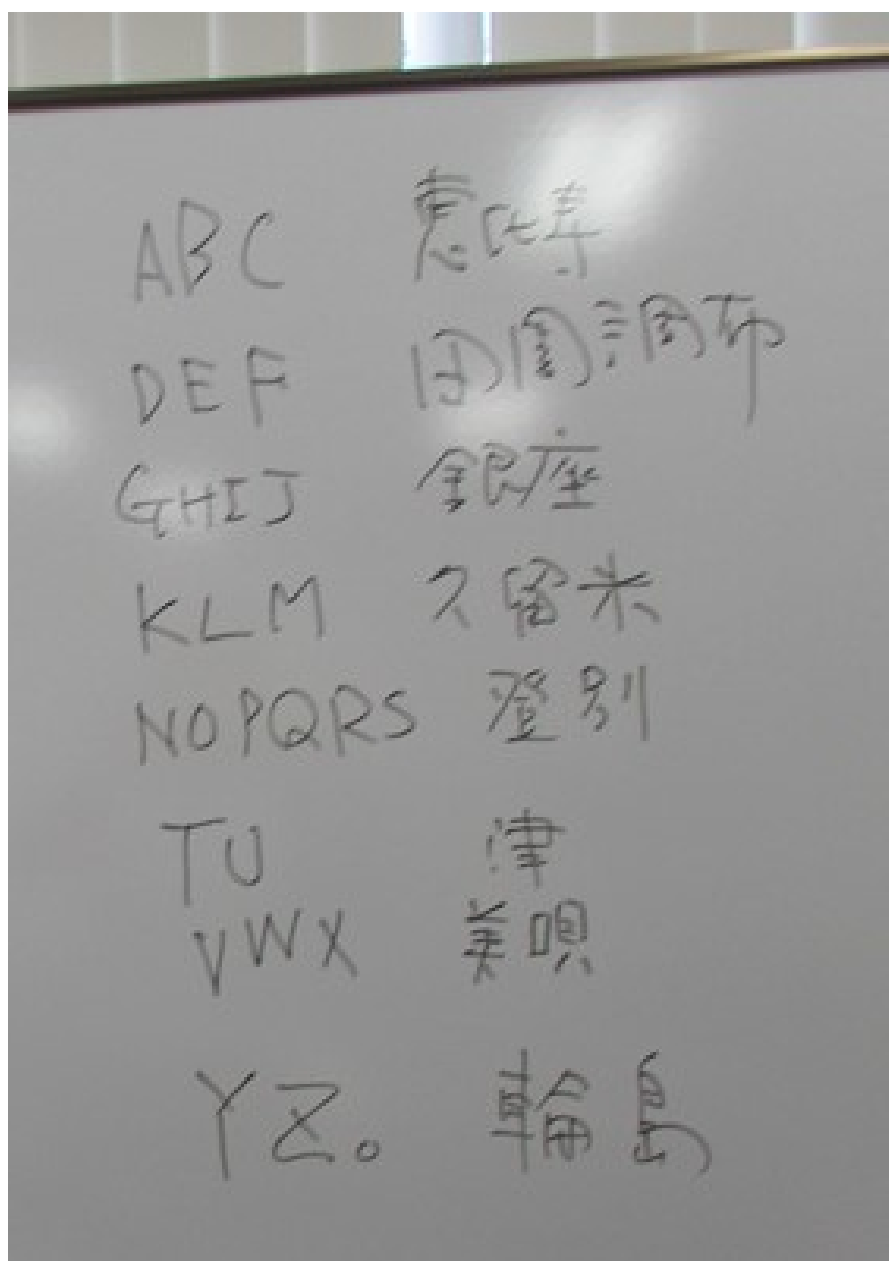 ABC 恵比寿
DEF 田園調布
GHIJ 銀座
KLM 久留米
NOPQRS 登別
TU 津
VWX 美唄
YZ。 輪島